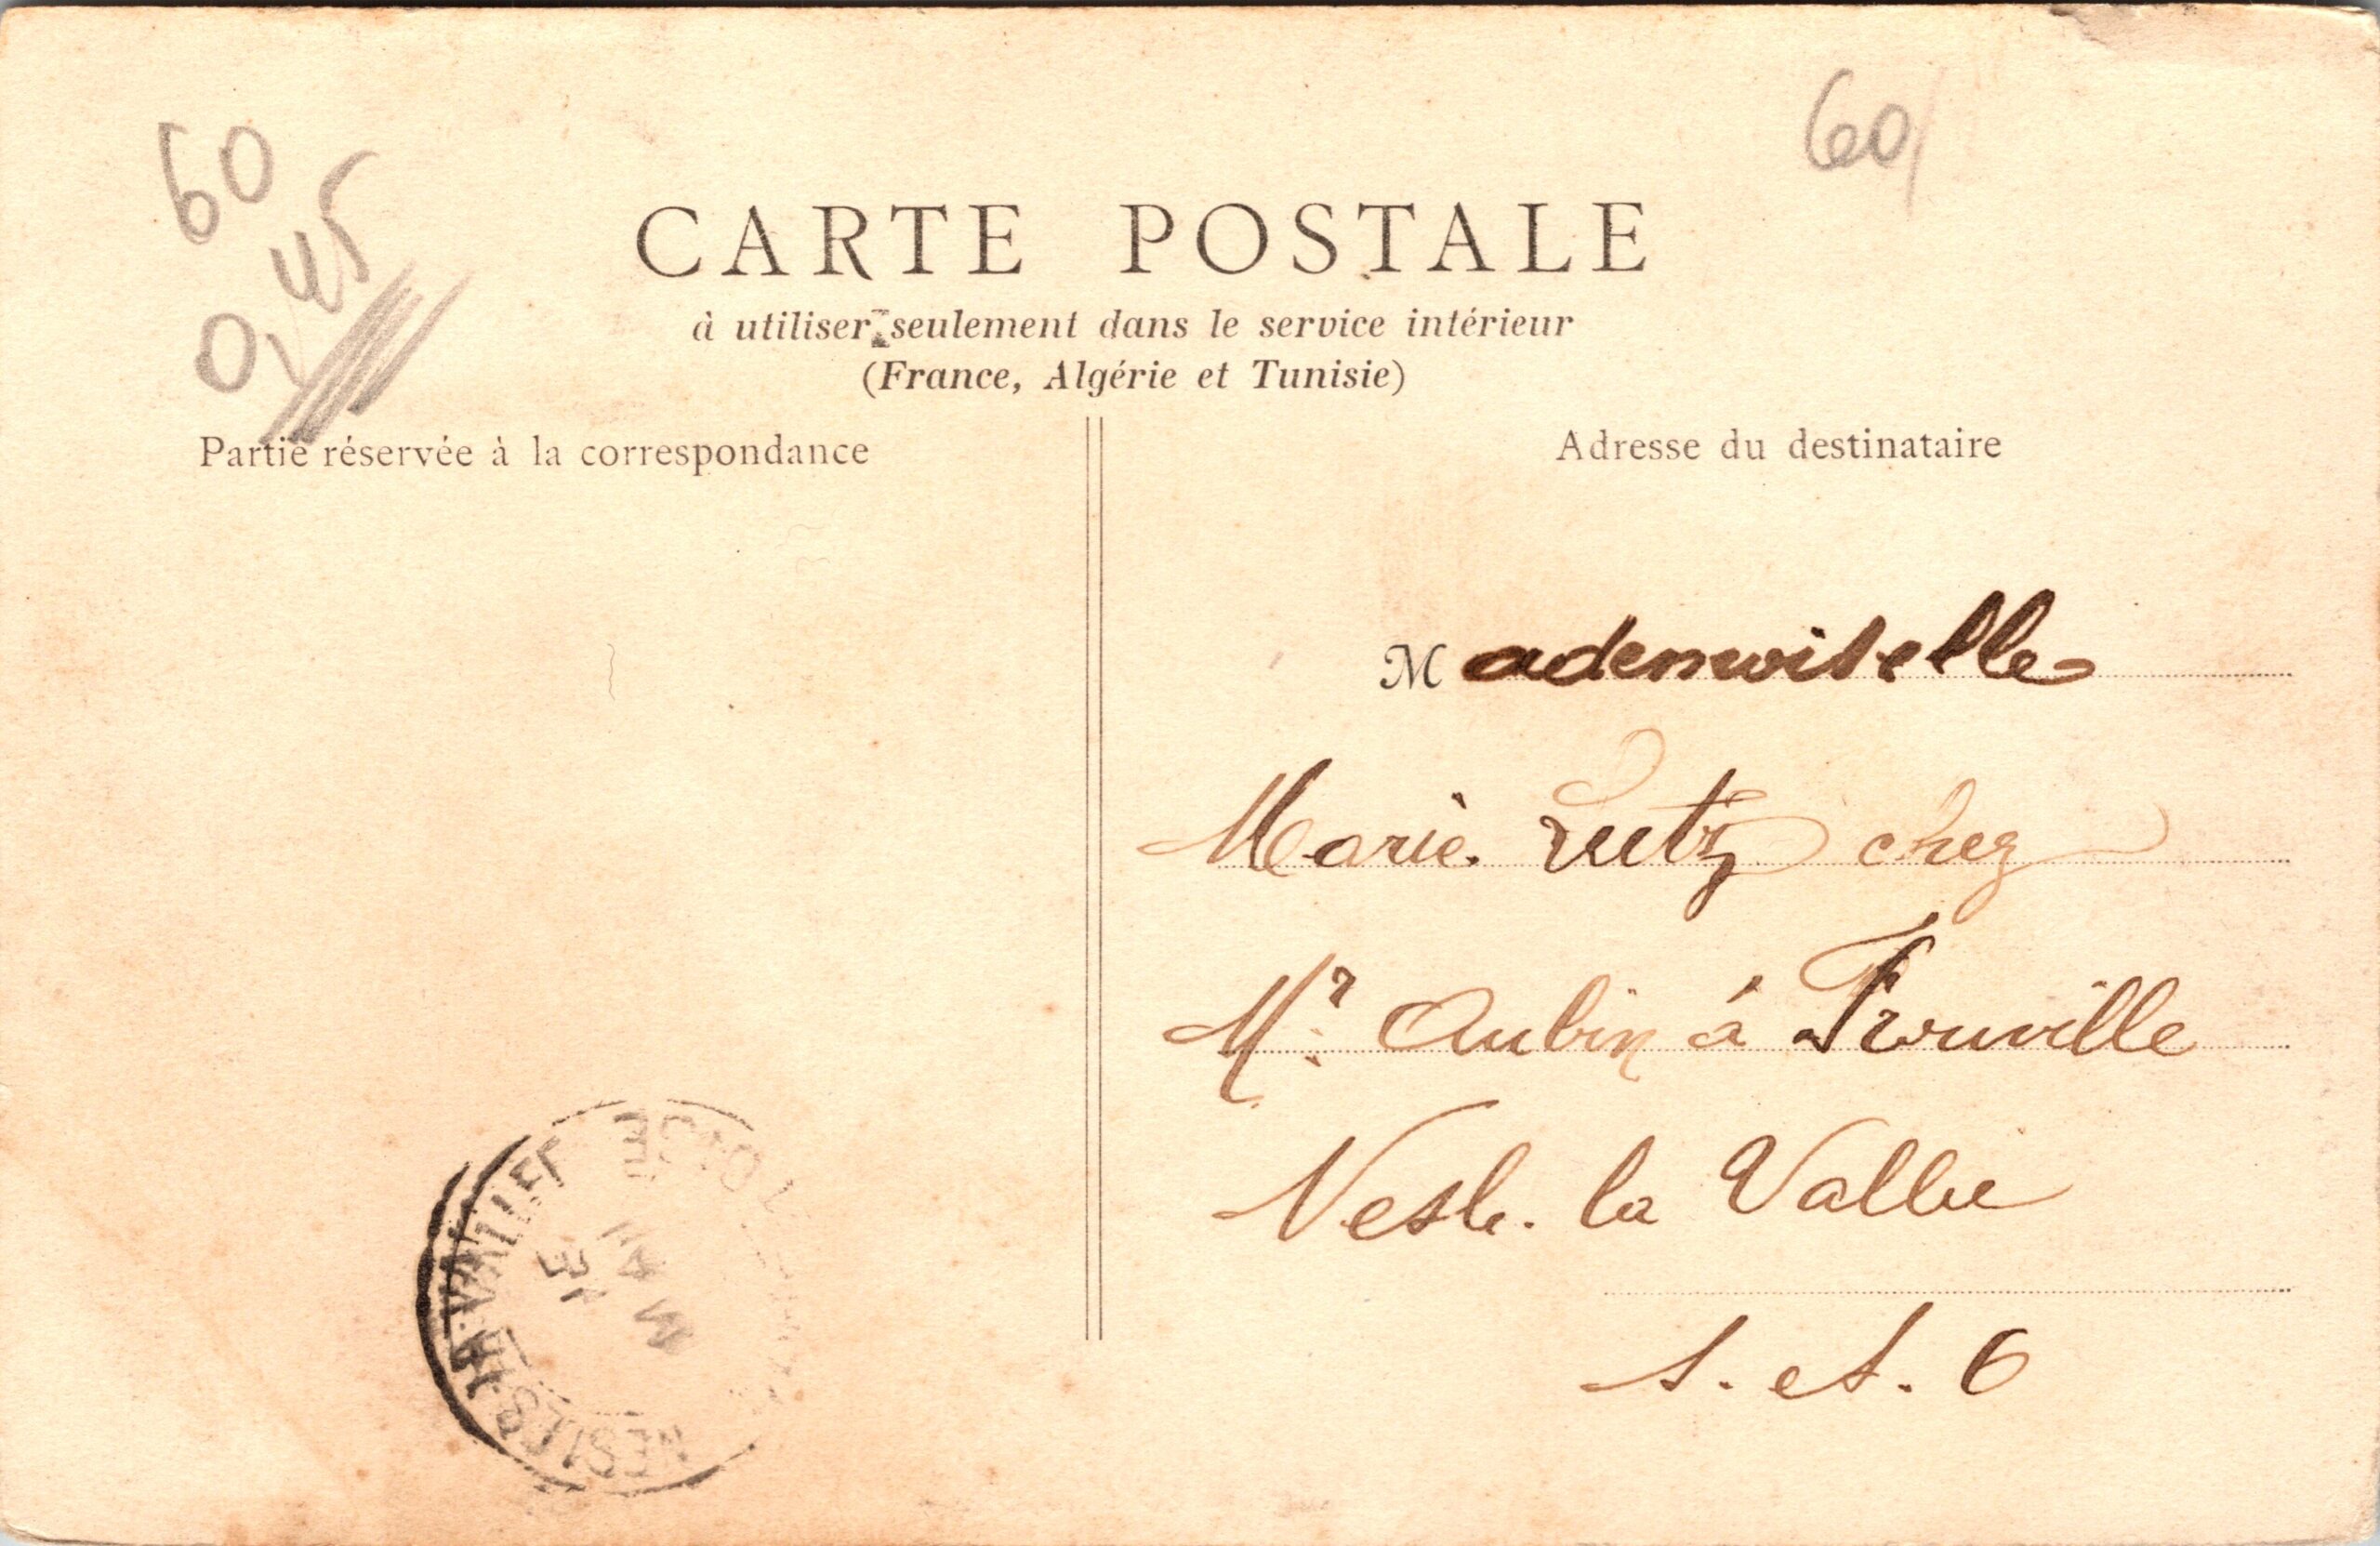 60
60
0,45
CARTE POSTALE
à utiliser seulement dans le service intérieur
(France, Algérie et Tunisie)
Partie réservée à la correspondance
Adresse du destinataire
Mademoiselle
Marie Lutz chez
Mr Aubin à Frouville
Nesle. la Vallée
S. et. O
NESLES-LA-VALLÉE